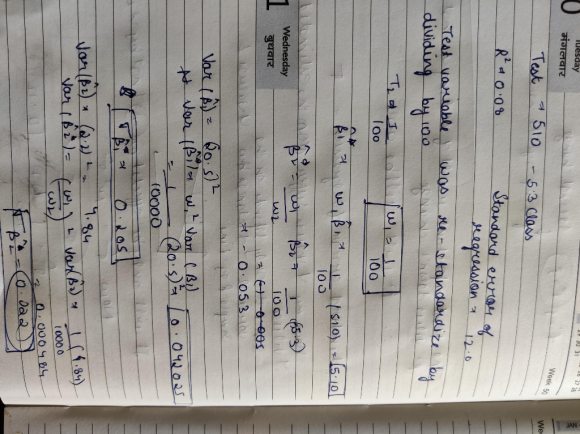 Tuesday
मंगलवार
Week 50
Test = 510 - 5.3 Class
R² = 0.08 Standard error of
regression = 12.0
Test variable was re-standardize by
dividing by 100
T₂ = I/100 w₁ = 1/100
β̂₁* = w₁ β̂₁ = 1/100 (510) = 5.10
β̂₂* = w₁/w₂ β̂₂ = 1/100 (-5.3)
= - 0.053
1
Wednesday
बुधवार
Var (β̂₁) = (20.5)²
Var (β̂₁*) = w₁² Var (β̂₁)
= 1/10000 (20.5)² = 0.042025
√β̂₁* = 0.205
Var (β̂₂) = (2.2)² = 4.84
Var (β̂₂*) = (w₁/w₂) = Var(β̂₂) = 1/10000 (4.84)
= 0.000484
√β̂₂* = 0.022